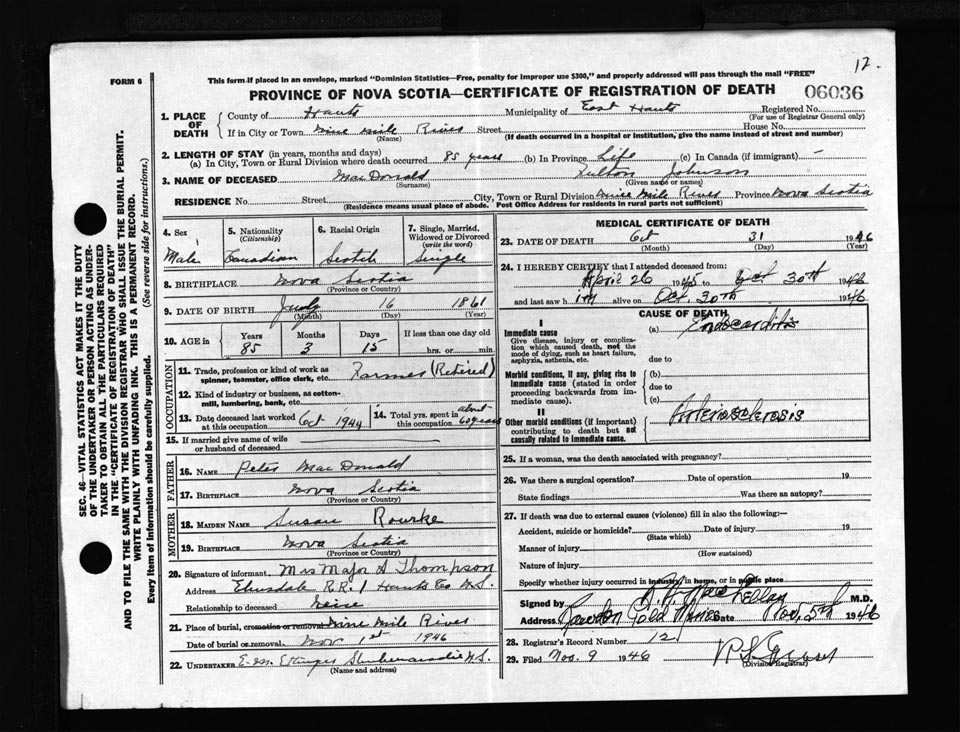 12.
FORM 6
This form if placed in an envelope, marked "Dominion Statistics—Free, penalty for improper use $300," and properly addressed will pass through the mail "FREE"
PROVINCE OF NOVA SCOTIA—CERTIFICATE OF REGISTRATION OF DEATH 06036
1. PLACE OF DEATH
County of Hants Municipality of East Hants Registered No.
(For use of Registrar General only)
If in City or Town Nine Mile River Street House No.
(Name) (If death occurred in a hospital or institution, give the name instead of street and number)
2. LENGTH OF STAY (in years, months and days)
(a) In City, Town or Rural Division where death occurred 85 years (b) In Province Life (c) In Canada (if immigrant) –
3. NAME OF DECEASED MacDonald Johnson
(Surname) (Given name or names)
RESIDENCE No. Street City, Town or Rural Division Nine Mile River Province Nova Scotia
(Residence means usual place of abode. Post Office Address for residents in rural parts not sufficient)
4. Sex 5. Nationality 6. Racial Origin 7. Single, Married, Widowed or Divorced
(Citizenship) (write the word)
Male Canadian Scotch Single
8. BIRTHPLACE Nova Scotia
(Province or Country)
9. DATE OF BIRTH July 16 1861
(Month) (Day) (Year)
10. AGE in Years Months Days If less than one day old
85 3 15 hrs. or min.
OCCUPATION
11. Trade, profession or kind of work as spinner, teamster, office clerk, etc. Farmer (Retired)
12. Kind of industry or business, as cotton-mill, lumbering, bank, etc.
13. Date deceased last worked at this occupation Oct 1944 14. Total yrs. spent in this occupation about 60 years
15. If married give name of wife or husband of deceased
FATHER
16. NAME Peter MacDonald
17. BIRTHPLACE Nova Scotia
(Province or Country)
MOTHER
18. MAIDEN NAME Susan Rourke
19. BIRTHPLACE Nova Scotia
(Province or Country)
20. Signature of informant Mrs Major A Thompson
Address Elmsdale R.R. 1 Hants Co N.S.
Relationship to deceased Neice
21. Place of burial, cremation or removal Nine Mile River
Date of burial or removal Nov 1st 1946
22. UNDERTAKER E. M. Ettinger Shubenacadie N.S.
(Name and address)
MEDICAL CERTIFICATE OF DEATH
23. DATE OF DEATH Oct 31 1946
(Month) (Day)
24. I HEREBY CERTIFY that I attended deceased from:
April 26 1945 to Oct 30th 1946
and last saw him alive on Oct. 30th 1946
CAUSE OF DEATH
I
Immediate cause (a) Endocarditis
Give disease, injury or complication which caused death, not the mode of dying, such as heart failure, asphyxia, asthenia, etc.
due to
Morbid conditions, if any, giving rise to immediate cause (stated in order proceeding backwards from immediate cause).
(b)
due to
(c)
II
Other morbid conditions (if important) contributing to death but not causally related to immediate cause.
Arteriosclerosis
25. If a woman, was the death associated with pregnancy?
26. Was there a surgical operation? Date of operation 19
State findings Was there an autopsy?
27. If death was due to external causes (violence) fill in also the following:—
Accident, suicide or homicide? Date of injury 19
(State which)
Manner of injury
(How sustained)
Nature of injury
Specify whether injury occurred in industry, in home, or in public place
Signed by MacLellan M.D.
Address Rawdon Gold Mines Date Nov. 5th 1946
28. Registrar's Record Number 12
29. Filed Nov. 9 1946
(Division Registrar)
SEC. 46—VITAL STATISTICS ACT MAKES IT THE DUTY
OF THE UNDERTAKER OR PERSON ACTING AS UNDER-
TAKER TO OBTAIN ALL THE PARTICULARS REQUIRED
IN THE "CERTIFICATE OF REGISTRATION OF DEATH"
AND TO FILE THE SAME WITH THE DIVISION REGISTRAR WHO SHALL ISSUE THE BURIAL PERMIT.
WRITE PLAINLY WITH UNFADING INK. THIS IS A PERMANENT RECORD.
Every item of information should be carefully supplied. (See reverse side for instructions.)